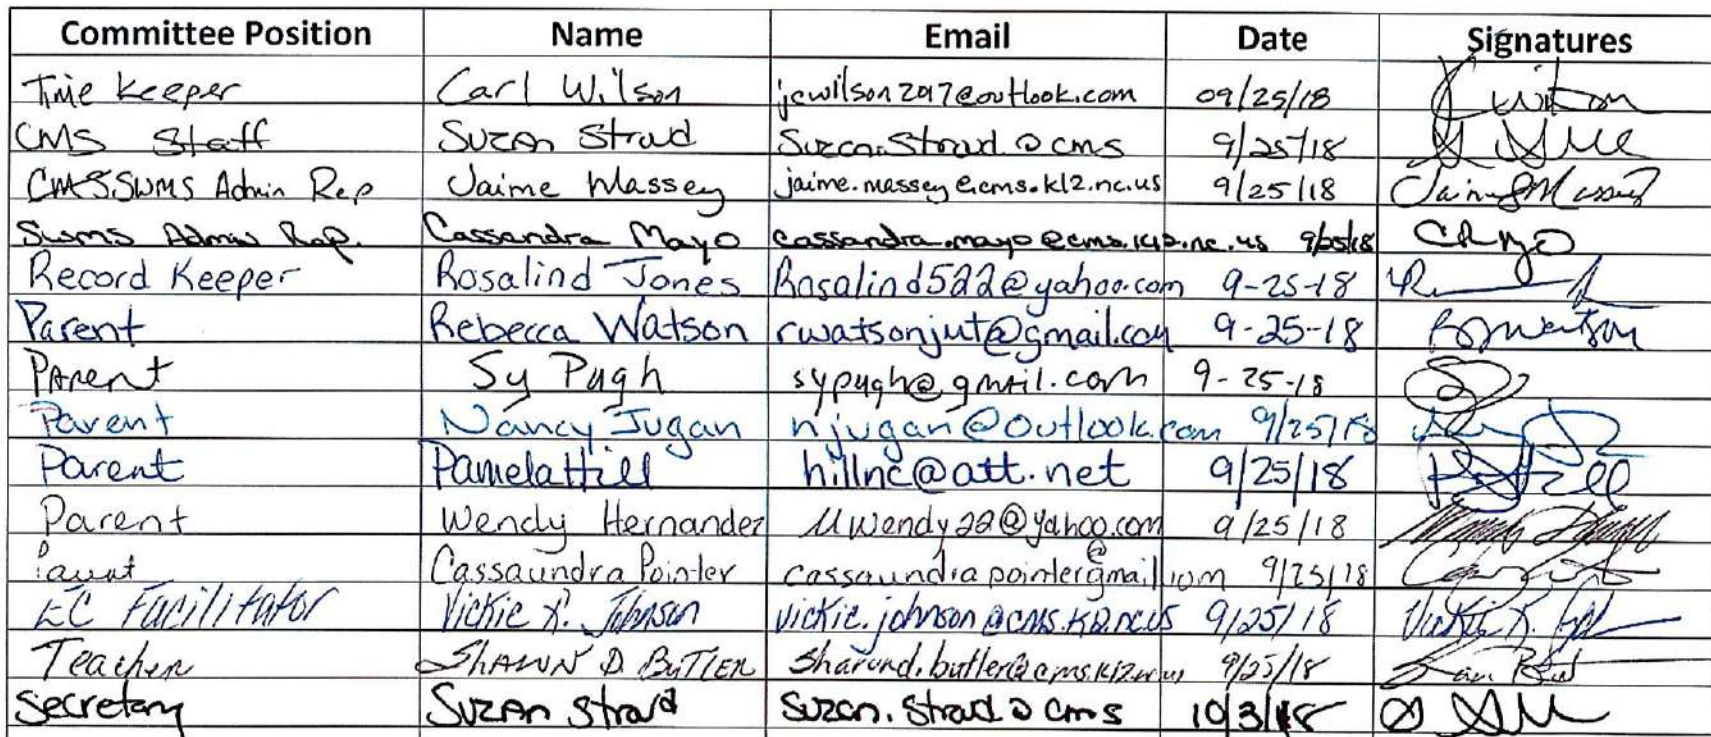 Committee Position Name Email Date Signatures
Time Keeper Carl Wilson jcwilson2917@outlook.com 09/25/18
CMS Staff Suzan Stroud Suzan.Stroud@cms 9/25/18
CMS.SWMS Admin Rep Jaime Massey jaime.massey@cms.k12.nc.us 9/25/18 Jaime Massey
Swms Admin Rep. Cassandra Mayo cassandra.mayo@cms.k12.nc.us 9/25/18 CRMayo
Record Keeper Rosalind Jones Rosalind522@yahoo.com 9-25-18
Parent Rebecca Watson rwatsonjut@gmail.com 9-25-18 Watson
Parent Sy Pugh sypugh@gmail.com 9-25-18
Parent Nancy Jugan njugan@outlook.com 9/25/18
Parent Pamela Hill hillnc@att.net 9/25/18
Parent Wendy Hernandez Mwendy22@yahoo.com 9/25/18
Parent Cassaundra Pointer cassaundrapointer@gmail.com 9/25/18
EC Facilitator Vickie K. Johnson vickie.johnson@cms.k12.nc.us 9/25/18 Vickie K.
Teacher Shawn D. Butler 9/25/18
Secretary Suzan Stroud Suzan.Stroud@cms 10/3/18